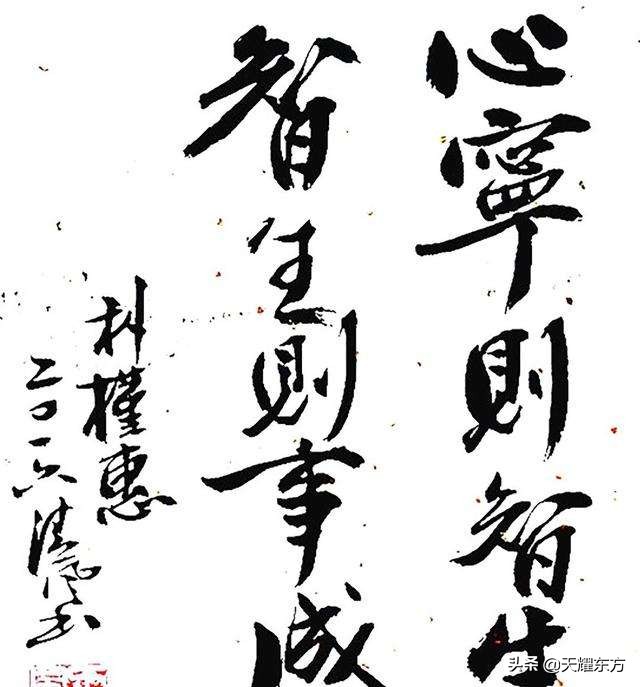 心寧則智生
智生則事成
槿惠
二〇一六
头条 @天耀东方